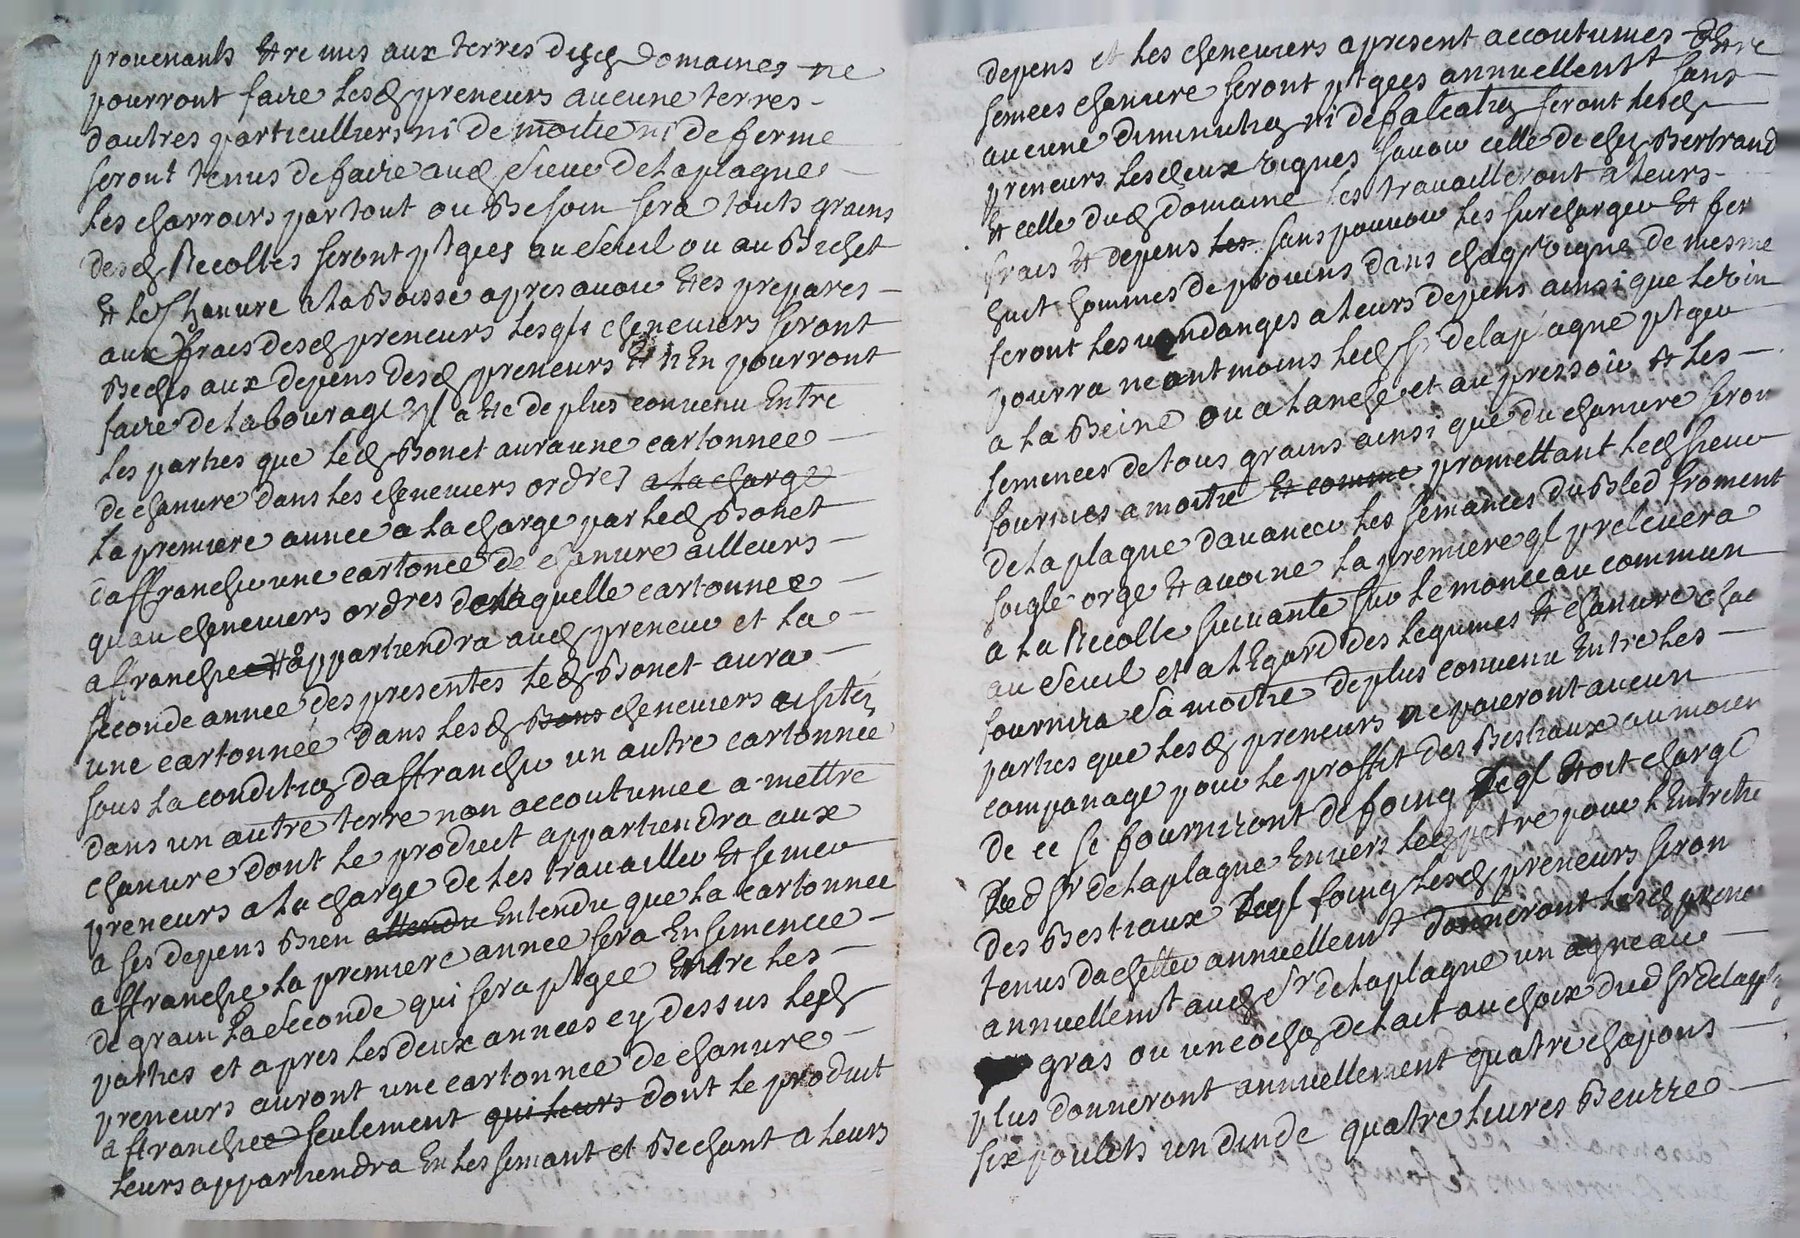 provenants Et remis aux terres desd domaines ne
pourront faire lesd preneurs aucune terres
dautres particulliers ni de moitie ni de ferme
seront tenus de faire aud sieur de la plagne
les charroirs partout ou Besoin sera touts grains
desd Recoltes seront ptges au seuil ou au Bichet
Et le Chanvre a la Boisse apres avoir Etes prepares
aux frais desd preneurs lesqls cheneviers seront
Beches aux depens desd preneurs Et n En pourront
faire de labourage Il a ete de plus convenu Entre
les parties que led Bonet aura une cartonnee
de chanvre dans les cheneviers ordres a la charge
la premiere annee a la charge par led Bonet
daffranchir une cartonee de chanvre ailleurs
quau cheneviers ordres de laquelle cartonnee
afranchie appartiendra aud preneur et la
seconde annee des presentes led Bonet aura
une cartonnee dans lesd Bons cheneviers
sous la condition daffranchir un autre cartonnee
dans un autre terre non accoutumee a mettre
chanvre dont le produit appartiendra aux
preneurs a la charge de les travailler Et semer
a ses depens Bien attendu Entendu que la cartonnee
affranchie la premiere annee sera Ensemencee
de grain la seconde qui sera ptgee Entre les
parties et apres les deux annees cy dessus lesd
preneurs auront une cartonnee de chanvre
affranchiee seulement qui leurs dont le produit
leurs appartiendra En les semant et Bechant a leurs
depens et les cheneviers apresent accoutumes Etre
semees chanvre seront ptgees annuellemt sans
aucune diminution ni defalcation seront lesd
preneurs lesdeux vignes savoir celle de chez Bertrand
Et celle dud domaine les travailleront a leurs
frais Et depens les sans pouvoir les surcharger Et fer
huit hommes de provins dans chaq vigne de mesme
feront les vendanges a leurs depens ainsi que le vin
pourra neantmoins led sr de la plagne ptger
a la Beine ou a lanche et au pressoir Et les
semences de tous grains ainsi que du chanvre seron
fournies a moitie Et comme promettant led sieur
de la plagne davancer les semances du Bled froment
soigle orge Et avoine la premiere ql prelevera
a la Recolte suivante sur le monceau commun
au seuil et a lEgard des legumes Et chanvre chac
fournira sa moitie de plus convenu Entre les
parties que lesd preneurs ne paieront aucun
companage pour le proffit des Bestiaux au moien
de ce se fourniront de foing deql Etoit charge
led sr de la plagne Envers led pour lEntretie
des Bestiaux deql foing lesd preneurs seron
tenus dachetter annuellemt donneront lesd prene
annuellemt aud sr de la plagne un agneau
gras ou un cochon de lait au choix dud sr de la
plus donneront annuellement quatre chapons
six poulets un dinde quatre livres Beurre